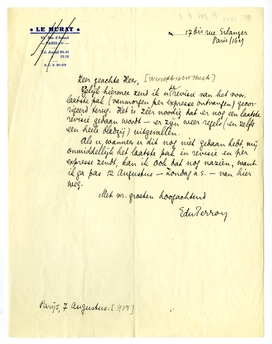 LE MURAT
17 bis rue Erlanger
Paris (16e)
Zeer geachte Heer,
Gelijk hiermee zend ik U de revisie van het voor-
laatste pak (vanmorgen per expresse ontvangen) gecor-
rigeerd terug. Het is zeer noodig dat er nog een laatste
revisie gedaan wordt — er zijn weer regels (en zelfs
een heele bladzij) uitgevallen.
Als u wanneer u dit nog niet gedaan hebt mij
onmiddellijk het laatste pak in revisie en per
expresse zendt, kan ik ook dat nog nazien, want
ik ga pas 12 Augustus — Zondag a.s. — van hier
weg.
Met vr. groeten hoogachtend
EduPerron
Parijs, 7 Augustus.